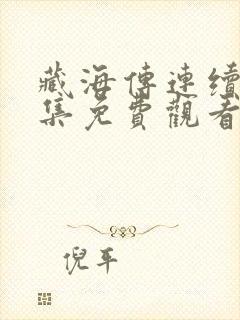 藏海傳連續
集免費觀看
倪平